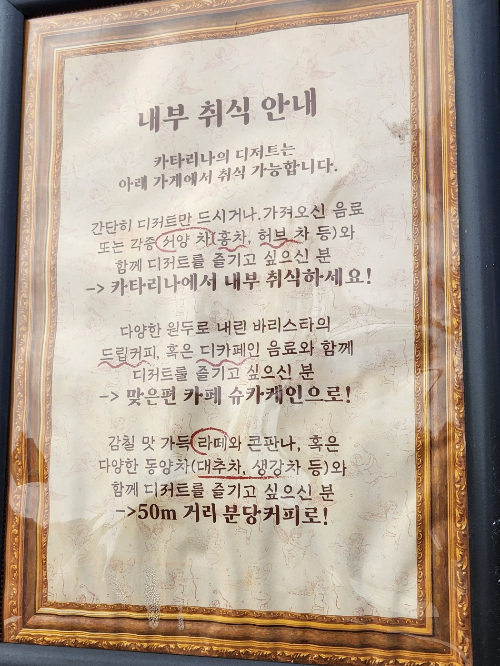 내부 취식 안내
카타리나의 디저트는
아래 가게에서 취식 가능합니다.
간단히 디저트만 드시거나, 가져오신 음료
또는 각종 서양 차(홍차, 허브 차 등)와
함께 디저트를 즐기고 싶으신 분
-> 카타리나에서 내부 취식하세요!
다양한 원두로 내린 바리스타의
드립커피, 혹은 디카페인 음료와 함께
디저트를 즐기고 싶으신 분
-> 맞은편 카페 슈가캐인으로!
감칠 맛 가득 라떼와 콘판나, 혹은
다양한 동양차(대추차, 생강차 등)와
함께 디저트를 즐기고 싶으신 분
->50m 거리 분당커피로!